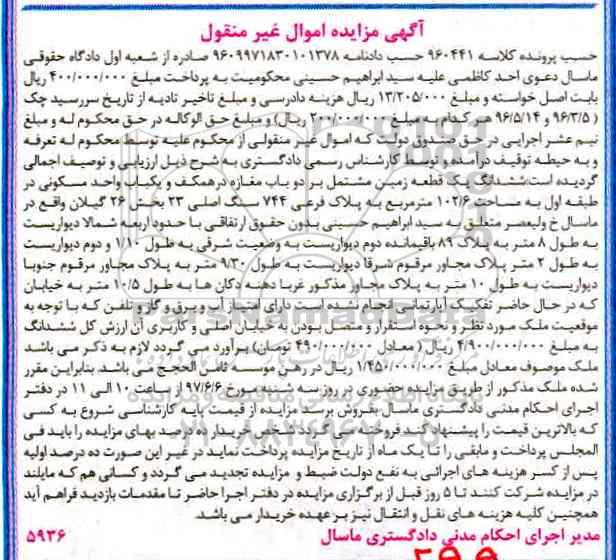 آگهی مزایده اموال غیر منقول
حسب پرونده کلاسه ۹۶۰۴۴۱ حسب دادنامه ۹۶۰۹۹۷۱۸۳۰۱۰۱۳۷۸ صادره از شعبه اول دادگاه حقوقی
ماسال دعوی احد کاظمی علیه سید ابراهیم حسینی محکومیت به پرداخت مبلغ ۴۰۰/۰۰۰/۰۰۰ ریال
بابت اصل خواسته و مبلغ ۱۳/۲۰۵/۰۰۰ ریال هزینه دادرسی و مبلغ تاخیر تادیه از تاریخ سررسید چک
( ۹۶/۳/۵ و ۹۶/۵/۱۴ هر کدام به مبلغ ۲۰۰/۰۰۰/۰۰۰ ریال) و مبلغ حق الوکاله در حق محکوم له و مبلغ
نیم عشر اجرایی در حق صندوق دولت که اموال غیر منقولی از محکوم علیه توسط محکوم له تعرفه
و به حیطه توقیف درآمده و توسط کارشناس رسمی دادگستری به شرح ذیل ارزیابی و توصیف اجمالی
گردیده است:ششدانگ یک قطعه زمین مشتمل بر دو باب مغازه درهمکف و یکباب واحد مسکونی در
طبقه اول به مساحت ۱۰۲/۶ مترمربع به پلاک فرعی ۷۴۴ سنگ اصلی ۲۳ بخش ۲۶ گیلان واقع در
ماسال خ ولیعصر متعلق به سید ابراهیم حسینی بدون حقوق ارتفاقی با حدود اربعه شمالا دیواریست
به طول ۸ متر به پلاک ۸۹ باقیمانده دوم دیواریست به وضعیت شرقی به طول ۱/۱۰ و دوم دیواریست
به طول ۲ متر پلاک مجاور مرقوم شرقا دیواریست به طول ۹/۳۰ متر به پلاک مجاور مرقوم جنوبا
دیواریست به طول ۱۰ متر به پلاک مجاور مذکور غربا دهنه دکان ها به طول ۱۰/۵ متر به خیابان
که در حال حاضر تفکیک آپارتمانی انجام نشده است دارای امتیاز آب و برق و گاز و تلفن که با توجه به
موقعیت ملک مورد نظر و نحوه استقرار و متصل بودن به خیابان اصلی و کاربری آن ارزش کل ششدانگ
به مبلغ ۴/۹۰۰/۰۰۰/۰۰۰ ریال ( معادل ۴۹۰/۰۰۰/۰۰۰ تومان) برآورد می گردد لازم به ذکر می باشد
ملک موصوف معادل مبلغ ۱/۴۵۰/۰۰۰/۰۰۰ ریال در رهن موسسه ثامن الحجج می باشد. بنابراین مقرر
شده ملک مذکور از طریق مزایده حضوری در روز سه شنبه مورخ ۹۷/۶/۶ از ساعت ۱۰ الی ۱۱ در دفتر
اجرای احکام مدنی دادگستری ماسال بفروش برسد مزایده از قیمت پایه کارشناسی شروع به کسی
که بالاترین قیمت را پیشنهاد کند فروخته می شود خریدار ده درصد بهای مزایده را باید فی
المجلس پرداخت و مابقی را تا یک ماه از تاریخ مزایده پرداخت نماید در غیر این صورت ده درصد اولیه
پس از کسر هزینه های اجرائی به نفع دولت ضبط و مزایده تجدید می گردد و کسانی هم که مایلند
در مزایده شرکت کنند تا ۵ روز قبل از برگزاری مزایده در دفتر اجرا حاضر تا مقدمات بازدید فراهم آید
همچنین کلیه هزینه های نقل و انتقال نیز بر عهده خریدار می باشد.
مدیر اجرای احکام مدنی دادگستری ماسال ۵۹۳۶